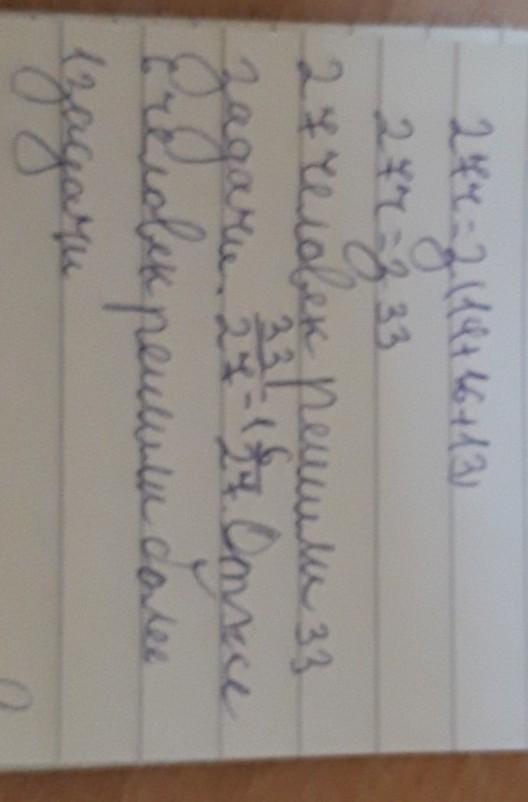 27ч=з(14+16+13)
27ч=з 33
27 человек решили 33
задачи. 33/27=1 6/27. Отже
6 человек решили более
1 задачи